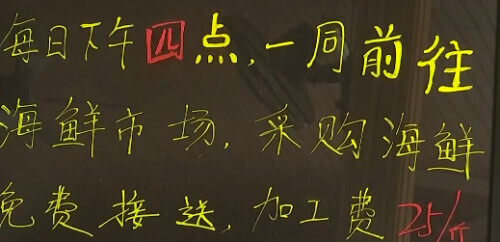 每日下午四点,一同前往
海鲜市场,采购海鲜
免费接送,加工费25/斤